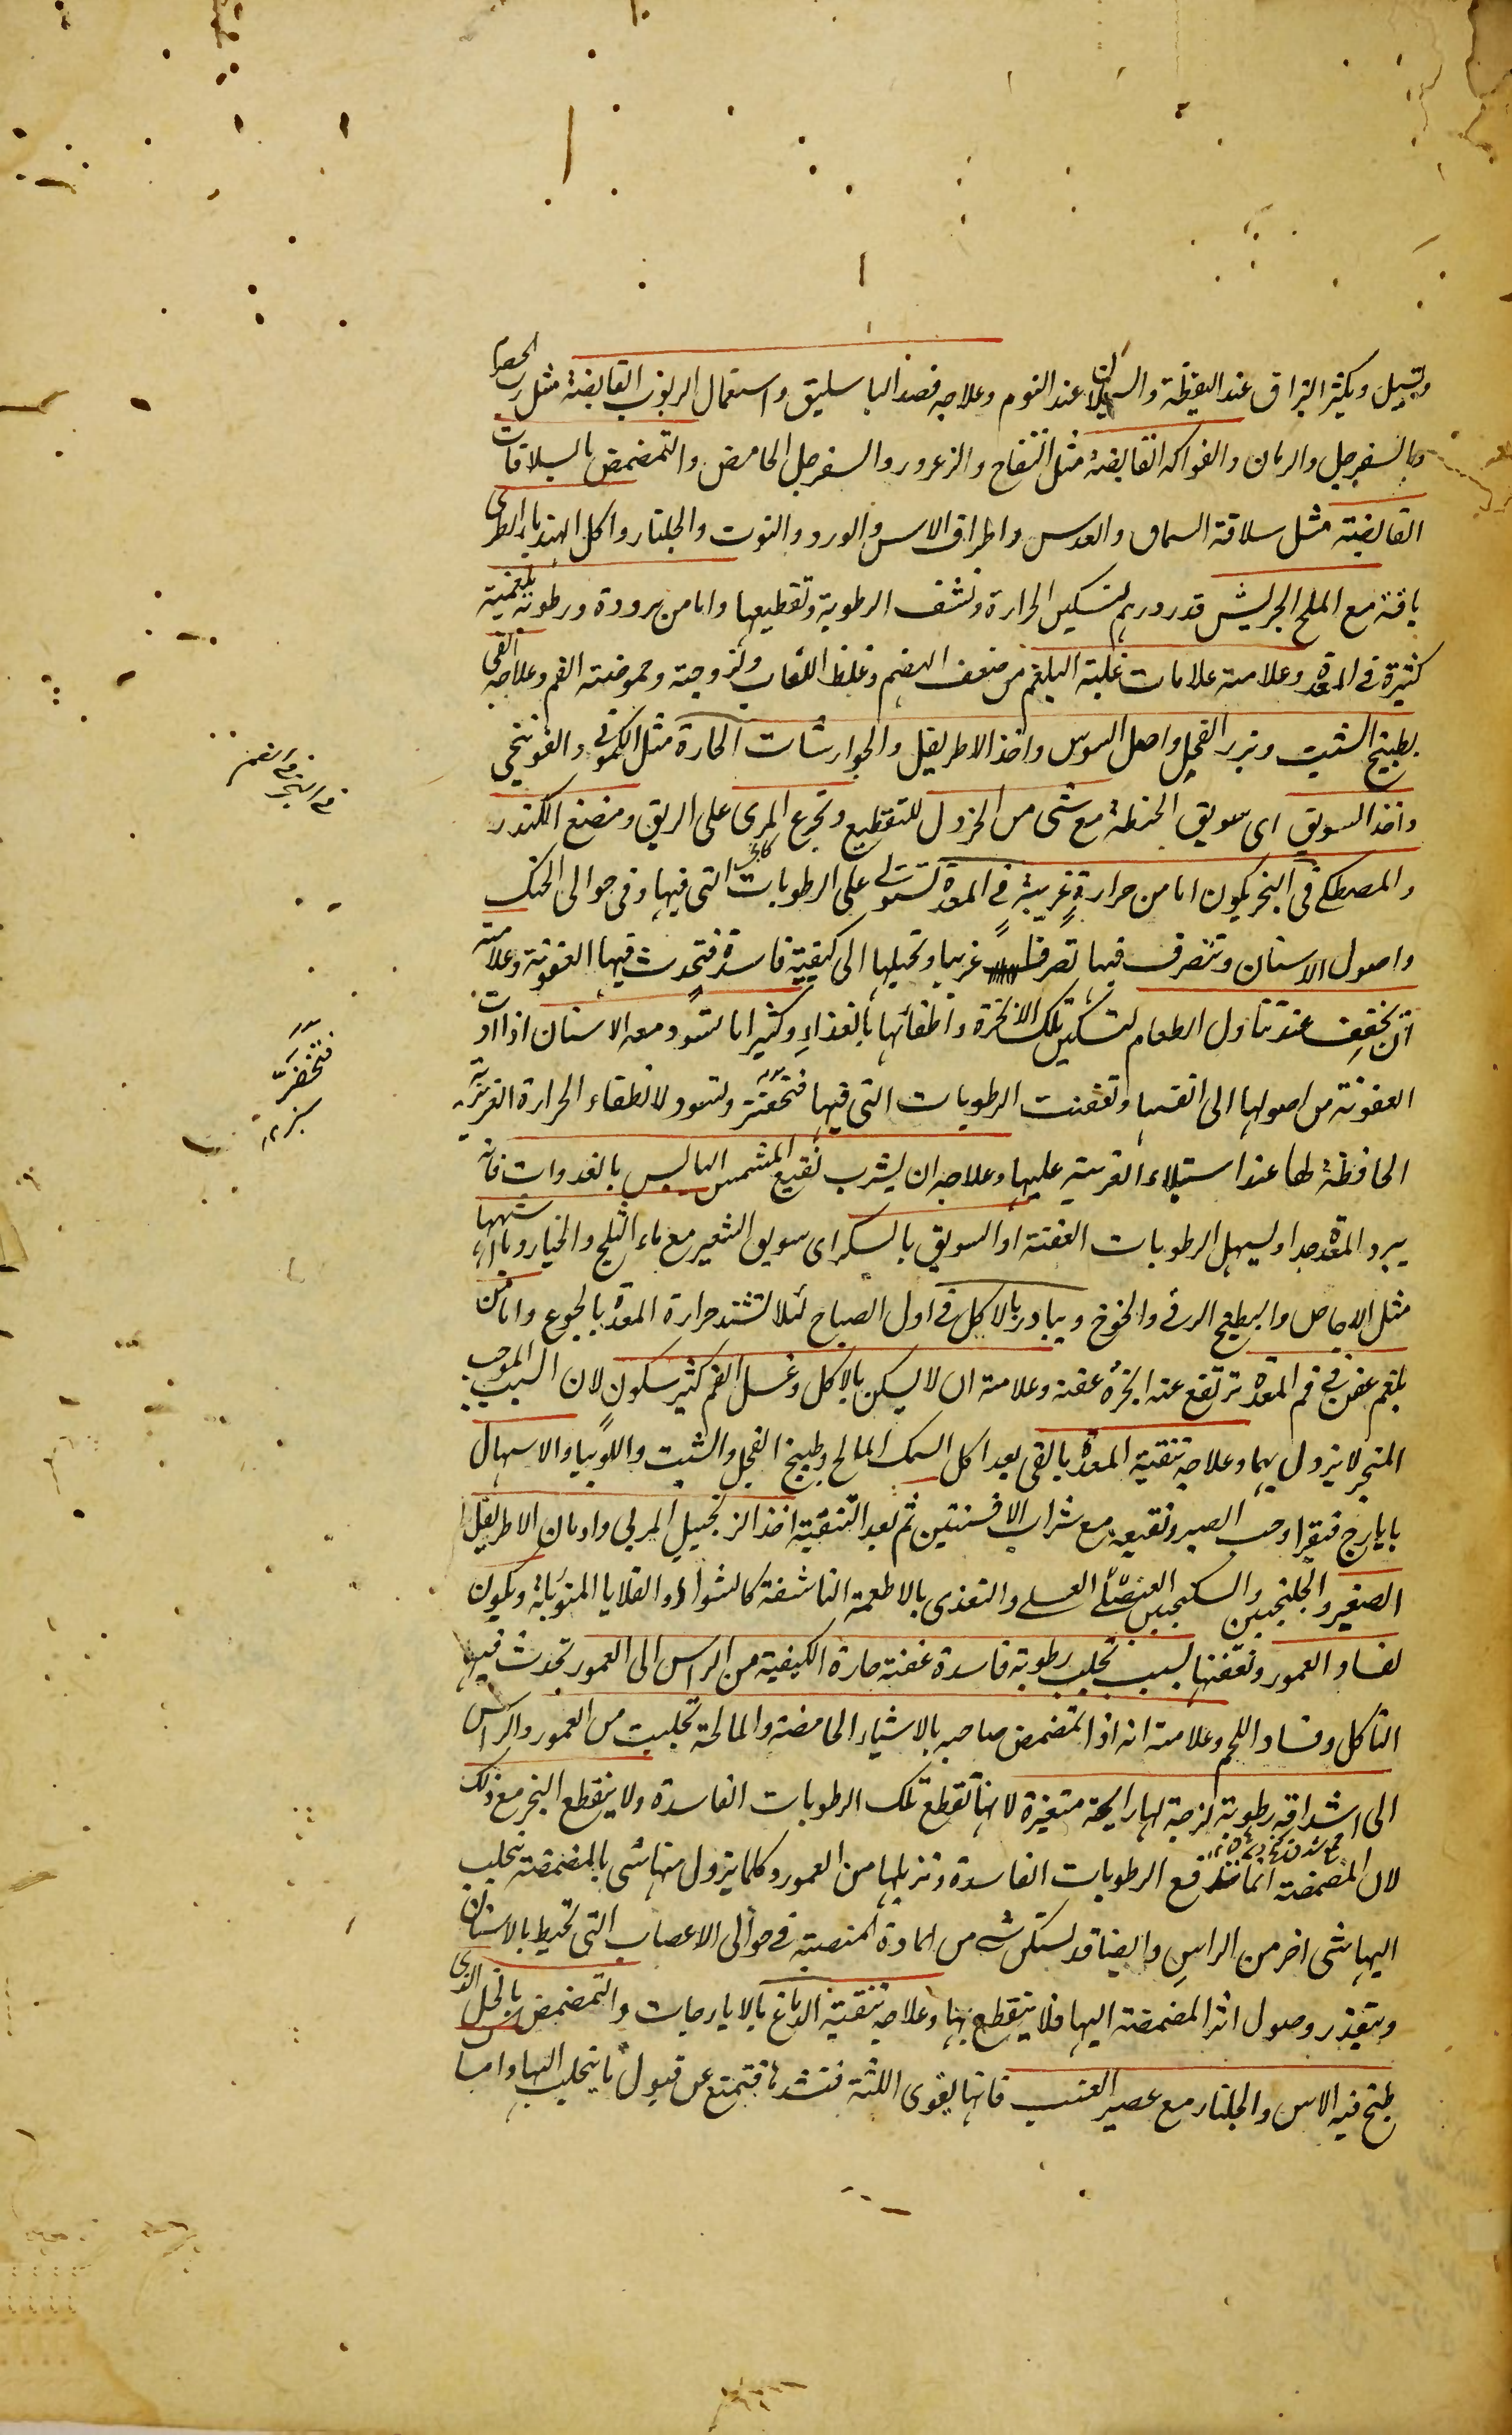 ويسيل ويكثر البزاق عند اليقظة والسيلان عند النوم وعلاجه فصد الباسليق واستعمال الربوب القابضة مثل رب الحصرم
والسفرجل والرمان والفواكه القابضة مثل التفاح والزعرور والسفرجل الحامض والتمضمض بالسلاقات
القابضة مثل سلاقة السماق والعدس واطراف الاس والورد والتوت والجلنار واكل الهندباء الطرى
باقة مع الملح الجريش قدر درهم لتسكين الحرارة ونشف الرطوبة وتقطيعها واما من برودة ورطوبة بلغمية
كثيرة فى المعدة وعلامته علامات غلبة البلغم من ضعف الهضم وغلظ اللعاب ولزوجته وحموضته الفم وعلاجه القى
بطبيخ الشبت وبزر الفجل واصل السوس واخذ الاطريفل والجوارشات الحارة مثل الكمونى والفوتنجى
واخذ السويق اى سويق الحنطة مع شى من الخردل للتقطيع وتجرع المرى على الريق ومضغ الكندر
والمصطكى فى البخر يكون اما من حرارة غريبة فى المعدة تستولى على الرطوبات التى فيها وفى حوالى الحنك
واصول الاسنان وتتصرف فيها تصرفا غريبا وتحيلها الى كيفية فاسدة فتحدث فيها العفونة وعلامته
ان يخفف عند تناول الطعام لتسكين تلك الابخرة واطفائها بالغذاء وكثيرا ما تسود معه الاسنان اذا ادت
العفونة من اصولها الى انفسها وتعفنت الرطوبات التى فيها فتخضر وتسود لانطفاء الحرارة الغريزية
الحافظة لها عند استيلاء الغريبة عليها وعلاجه ان يشرب نقيع المشمش اليابس بالغدوات فانه
يبرد المعدة جدا ويسهل الرطوبات العفنة او السويق بالسكر اى سويق الشعير مع ماء الثلج والخيار وما اشبهها
مثل الاجاص والبطيخ الرقى والخوخ ويبادر بالاكل فى اول الصباح لئلا تشتد حرارة المعدة بالجوع واما من
بلغم عفن فى فم المعدة ترتفع عنه ابخرة عفنة وعلامته ان لا يسكن بالاكل وغسل الفم كثير سكون لان السبب الموجب
المبخر لا يزول بهما وعلاجه تنقية المعدة بالقى بعد اكل السمك المالح وطبيخ الفجل والشبت واللوبيا والاسهال
بايارج فيقرا وحب الصبر ونقيعه مع شراب الافسنتين ثم بعد التنقية اخذ الزنجبيل المربى وادمان الاطريفل
الصغير والجلنجبين والسكنجبين العنصلى العسلى والتغذى بالاطعمة الناشفة كالشواء والقلايا المتوبلة ويكون
لفساد العمور وتعفنها بسبب تحلب رطوبة فاسدة عفنة حارة الكيفية من الراس الى العمور تحدث فيها
التاكل وفساد اللحم وعلامته انه اذا تمضمض صاحبه بالاشياء الحامضة والمالحة تحلبت من العمور والراس
الى اشداقه رطوبة لزجة لها رايحة متغيرة لانها تقطع تلك الرطوبات الفاسدة ولا ينقطع البخر مع ذلك
لان المضمضة انما تدفع الرطوبات الفاسدة وتزيلها من العمور وكلما يزول منها شى بالمضمضة تحلب
اليها شى اخر من الراس وايضا قد يستكن شى من المادة المنصبة فى حوالى الاعصاب التى تحيط بالاسنان
ويتعذر وصول اثر المضمضة اليها فلا ينقطع بها وعلاجه تنقية الدماغ بالايارجات والتمضمض بالخل الذى
طبخ فيه الاس والجلنار مع عصير العنب فانها يقوى اللثة فتشدها فتمتنع عن قبول ما يتحلب اليها واما
فى البخر فى الفم
فتخضر